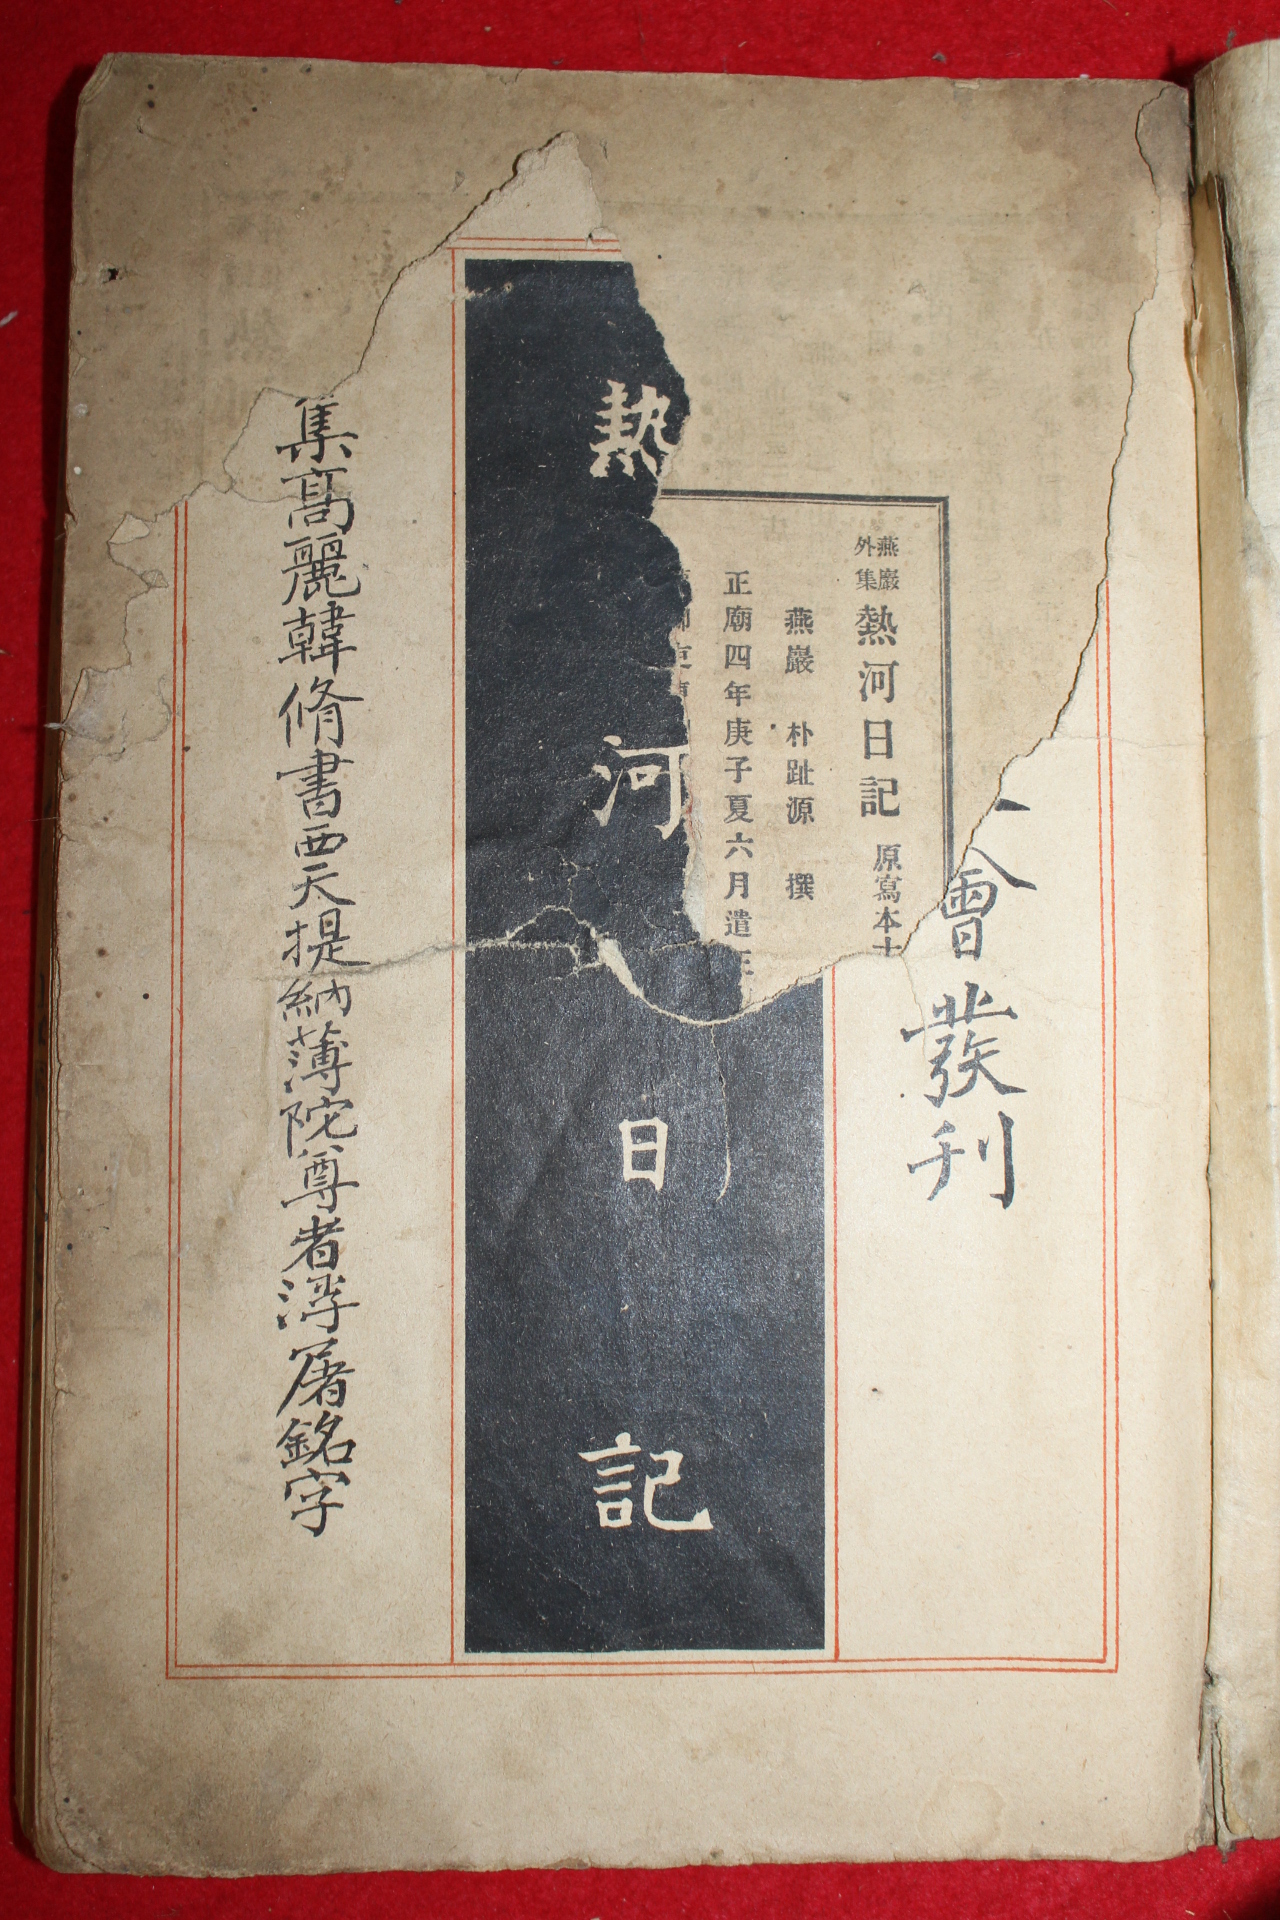 會發刊
燕巖
外集
熱河日記 原寫本
燕巖 朴趾源 撰
正廟四年庚子夏六月遣
熱河日記
集高麗韓脩書西天提納薄陀尊者浮屠銘字